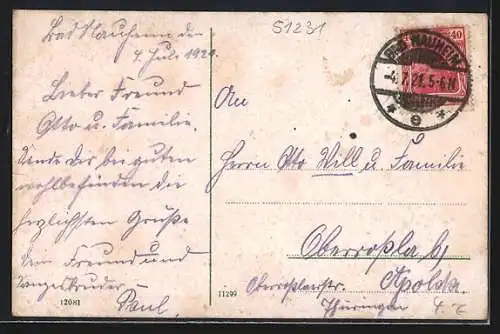 51231
Bad Nauheim den
4 Juli 1921.
Lieber Freund
Otto u. Familie.
Sende dir bei guten
wohlbefinden die
herzlichsten Grüße
dein Freund und
Paul.
12081
11299
40
BAD NAUHEIM
-4.7.21.5-6N
* e *
An
Herrn Otto Will u. Familie
Oberroßla b/
Apolda
Thüringen